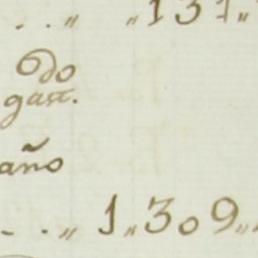 . . „ „ 131 „
do
gast.
año
. . „ 1 „ 309 „